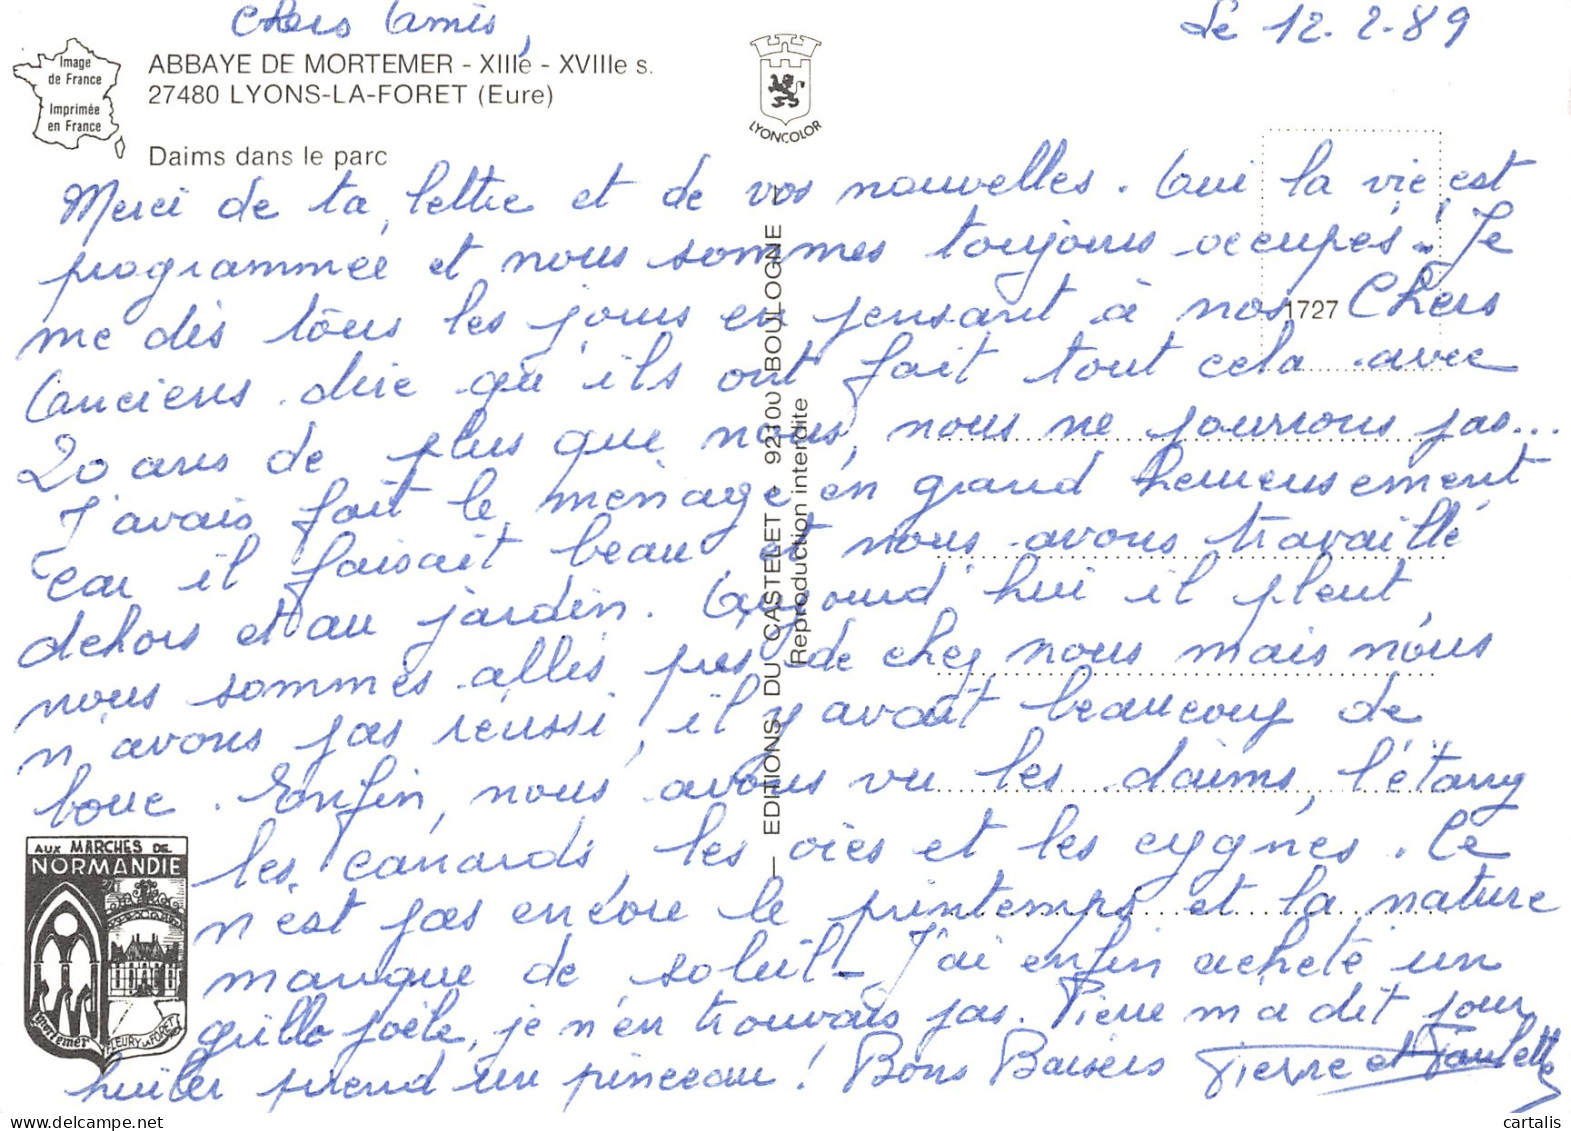 Chers Amis,
Le 12.2.89
Image
de France
Imprimée
en France
ABBAYE DE MORTEMER - XIIIe - XVIIIe s.
27480 LYONS-LA-FORET (Eure)
Daims dans le parc
LYONCOLOR
Merci de ta lettre et de vos nouvelles. Oui la vie est
programmée et nous sommes toujours occupés. Je
me dis tous les jours en pensant à nos Chers
1727
Anciens dire qu'ils ont fait tout cela avec
20 ans de plus que nous, nous ne pourrons pas...
J'avais fait le ménage en grand heureusement
car il faisait beau et nous avons travaillé
dehors et au jardin. Aujourd'hui il pleut,
nous sommes allés près de chez nous mais nous
n'avons pas réussi, il y avait beaucoup de
boue. Enfin, nous avons vu les daims, l'étang
les canards, les oies et les cygnes. Ce
n'est pas encore le printemps et la nature
manque de soleil - J'ai enfin acheté un
grille poële, je n'en trouvais pas. Pierre m'a dit pour
huiler prend un pinceau ! Bons Baisers Pierre et Paulette
— EDITIONS DU CASTELET - 92100 BOULOGNE —
Reproduction interdite
AUX MARCHES DE
NORMANDIE
Mortemer
FLEURY LA FORET
cartalis